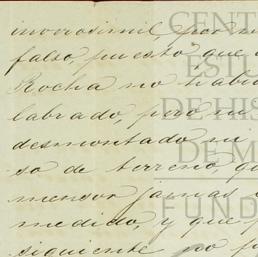 inverosimil, por
falso, puesto que
Rocha no habia
labrado, pero ni
desmontado ni
so de terreno,
mensor jamas
medido, y que
siguiente no p
CENT
ESTU
DE HIS
DE M
FUND